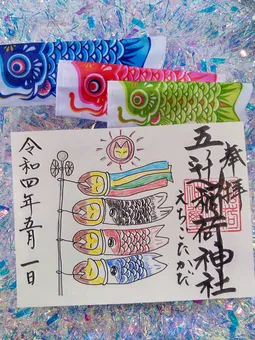 奉拝
稲荷神社
えちごたかだ
令和四年五月一日